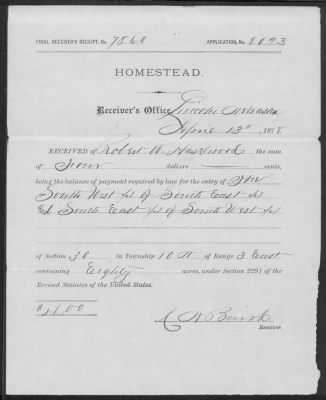 FINAL RECEIVER'S RECEIPT, No. 7860 APPLICATION, No. 8093
HOMESTEAD.
Receiver's Office, Lincoln Nebraska
April 13th, 1878
RECEIVED of Robert W. the sum
of Four dollars cents,
being the balance of payment required by law for the entry of
South West ¼ of South East ¼
South East ¼ of South West ¼
of Section 30 in Township 10 N of Range 3 East
containing Eighty acres, under Section 2291 of the
Revised Statutes of the United States.
$4.00
Receiver.